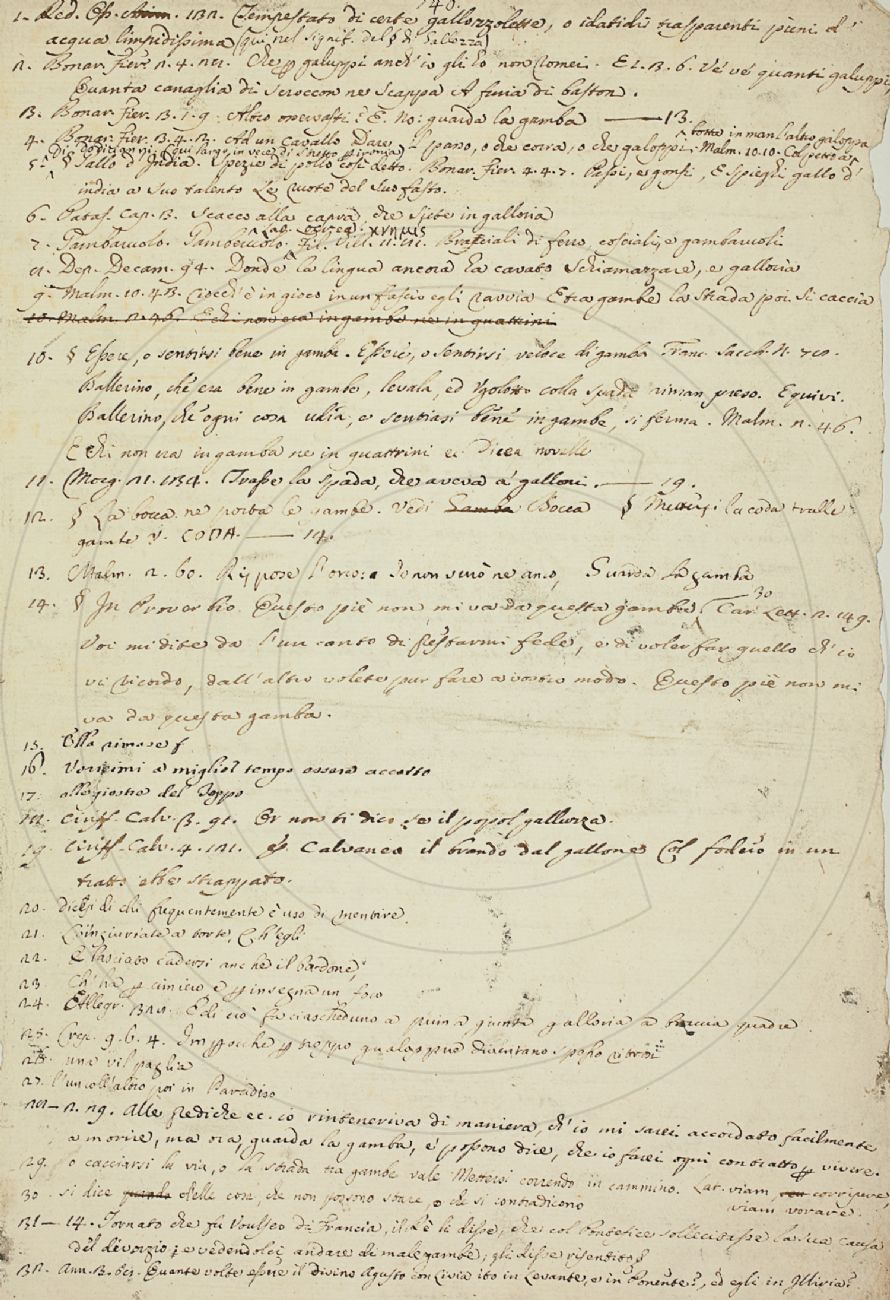 40.
1. Red. Esp. Atim. 132. Tempestato di certe gallozzolette, o idatidi trasparenti pieni d'
acqua limpidissima (qui nel signif. del § di Gallozza)
2. Bonar. Fier. 2. 4. 21. Che galuppi anch'io gli ho non tomei. E 1. 3. 6. Ve' ve' quanti galuppi,
Quanta canaglia di Scrocconi ne Scappa A furia di baston.
3. Bonar. Fier. 3. 1. 9. Altro osservasti? E. No: guarda la gamba — 13.
4. Bonar. Fier. 3. 4. 2. Ad un cavallo Dare botta in man l'altro galoppa
pano, o che corra, o che galoppi. Malm. 10. 10. Col petto a
5. § Gallo d'India. Spezie di pollo così detto. Bonar. Fier. 4. 4. 7. Passi, e gonfi, E spieghi gallo d'
india a suo talento Le ruote del suo fasto.
6. Pataf. cap. 3. Scacco alla capra, che siete in galloria
Lat. ocrea. κνημίς
7. Gambaruolo. Gamberuolo. Fil. Vill. 11. 81. Bracciali di ferro, cosciali, e gambaruoli
8. Dep. Decam. 94. Donde la lingua ancora ha cavato Schiamazzare, e galloria
9. Malm. 10. 43. Ciocch'è in gioco in un fascio egli ravvia E tra gambe la strada poi si caccia
10. Malm. 2. 46. E chi non era in gamba ne in quattrini
10. § Essere, o sentirsi bene in gambe. Essere, o sentirsi veloce di gamba Franc. Sacch. N. 70.
Ballerino, che era bene in gambe, levala, ed Ugolotto colla spada riman preso. E quivi.
Ballerino, che ogni cosa udia, e sentiasi bene in gambe, si ferma. Malm. 2. 46.
E chi non era in gamba ne in quattrini ec. Dicea novelle
11. Morg. 21. 134. Trasse la spada, che aveva a' galloni. — 19.
12. § La bocca ne porta le gambe. Vedi Gamba Bocca § Mettersi la coda tralle
gambe V. CODA. — 14.
13. Malm. 2. 60. Rispose l'orco: Io non verrò ne anco, Guarda la gamba
14. § In Proverbio. Questo piè non mi va da questa gamba. 30 Car. Lett. 2. 149.
Voi mi dite da l'un canto di prestarmi fede, e di voler far quello ch'io
vi ricordo, dall'altro volete pur fare a vostro modo. Questo piè non mi
va da questa gamba.
15. Ella rimase
16. Vorreimi a miglior tempo essere accorto
17. alle giostre del Toppo
18. Ciriff. Calv. 3. 91. Or non ti dico se il popol galluzza.
19. Ciriff. Calv. 4. 121. Calvaneo il brando dal gallone Col fodero in un
tratto ebbe strappato.
20. Dicesi di chi frequentemente è uso di mentire.
21. L'ingiuriate a torto, Ch'egli
22. E lasciato cadersi anche il bordone,
23. Ch'ha cimiero e insegna un foco
24. E Allegr. 321. E di ciò fa ciascheduno a prima giunta galloria a braccia quadre
25. Cresc. 9. 6. 4. Imperocché troppo galoppare diventano spesso ritrosi
26. una vil paglia
27. l'un coll'altro poi in Paradiso
28 — 2. 29. Alle prediche ec. io rinteneriva di maniera, ch'io mi sarei accordato facilmente
a morire, ma ora, guarda la gamba, e' possono dire, che io farei ogni contratto vivere.
29. o cacciarsi la via, o la strada tra gambe vale Mettersi correndo in cammino. Lat. viam corripere,
viam vorare.
30. si dice quando delle cose, che non possono stare, o che si contradicono
31 — 14. Tornato che fu Voulseo di Francia, il Rè li disse, che col Pontefice sollecitasse la sua causa
del divorzio; e vedendolci andare di male gambe, gli disse risentito
32. Ann. 3. Quante volte essere il divino Agusto con Livia ito in Levante, e in Ponente?, ed egli in Illiria?